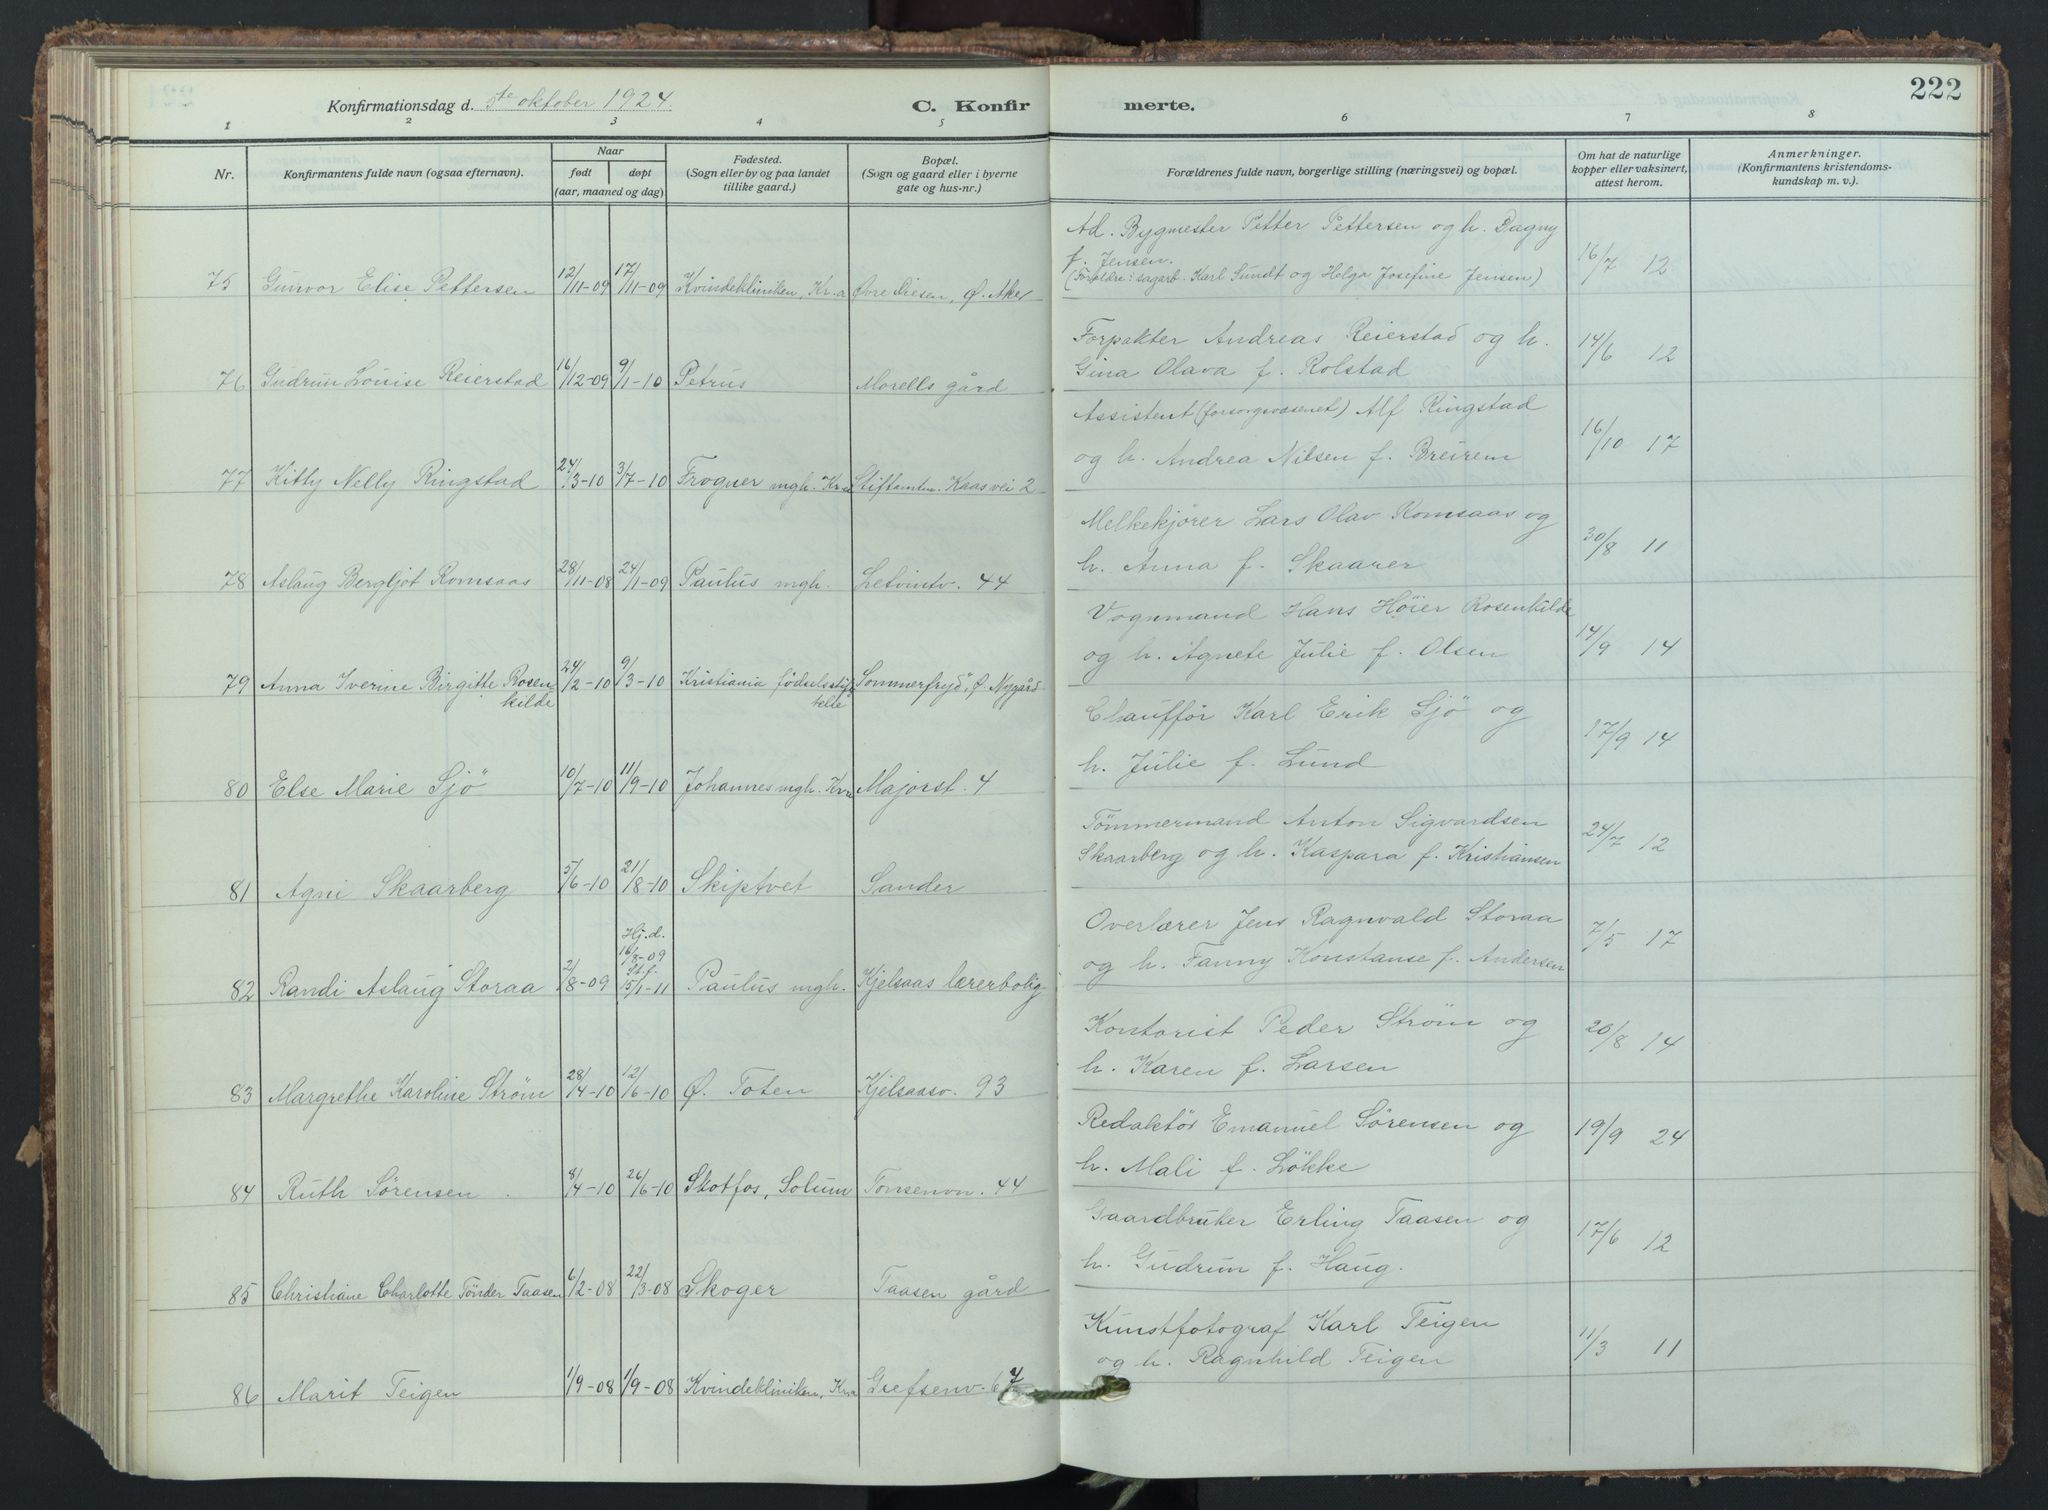 222
Konfirmationsdag d. 5te oktober 1924.
C. Konfir merte.
1 2 3 4 5 6 7 8
Nr.
Konfirmantens fulde navn (ogsaa efternavn).
Naar
født døpt
(aar, maaned og dag)
Fødested.
(Sogn eller by og paa landet
tillike gaard.)
Bopæl.
(Sogn og gaard eller i byerne
gate og hus-nr.)
Forældrenes fulde navn, borgerlige stilling (næringsvei) og bopæl.
Om hat de naturlige
kopper eller vaksinert,
attest herom.
Anmerkninger.
(Konfirmantens kristendoms-
kundskap m. v.).
Ad. Bygmester Petter Pettersen og h. Dagny
f. Jensen.
(Forældre: sagarb. Karl Sundt og Helga Josefine Jensen)
75 Gunvor Elise Pettersen 12/11-09 17/11-09 Kvindekliniken, Kr.a Øvre Disen, Ø. Aker 16/7 12
Forpakter Andreas Reierstad og h.
Gina Olava f. Rolstad
76 Gudrun Louise Reierstad 16/12-09 9/1-10 Petrus Morells gård 14/6 12
Assistent (forsorgsvæsenet) Alf Ringstad
og h. Andrea Nilsen f. Breirem
77 Kitty Nelly Ringstad 24/3-10 3/7-10 Frogner mgh. Kra Stiftamtm. Kaas vei 2 16/10 17
Melkekjører Lars Olav Romsaas og
h. Anna f. Skaarer
78 Aslaug Bergljot Romsaas 28/11-08 24/1-09 Paulus mgh. 44 30/8 11
Vognmand Hans Høier Rosenkilde
og h. Agnete Julie f. Olsen
79 Anna Iverine Birgitte Rosen-
kilde 24/2-10 9/3-10 Kristiania fødselsstif-
telse "Sommerfryd", Ø. Nygård 14/9 14
Chauffør Karl Erik Sjö og
h. Julie f. Lund
80 Else Marie Sjö 10/7-10 11/9-10 Johannes mgh. Kra Majorst. 4 17/9 14
Tömmermand Anton Sigvardsen
Skaarberg og h. Kaspara f. Kristiansen
81 Agni Skaarberg 5/6-10 21/8-10 Skiptvet Sander 24/7 12
Overlærer Jens Ragnvald Storaa
og h. Fanny Konstanse f. Andersen
82 Randi Aslaug Storaa 2/8-09 Hj.d. 16/8-09 St.f. 15/1-11 Paulus mgh. Kjelsaas lærerbolig 7/5 17
Kontorist Peder Strøm og
h. Karen f. Larsen
83 Margrethe Karoline Strøm 28/4-10 12/6-10 Ø. Toten Kjelsaasv. 93 20/8 14
Redaktör Emanuel Sørensen og
h. Mali f. Løkke
84 Ruth Sørensen 8/4-10 26/6-10 Skotfos, Solum Tonsenvn. 44 19/9 24
Gaardbruker Erling Taasen og
h. Gudrun f. Haug.
85 Christiane Charlotte Tönder Taasen 6/2-08 22/3-08 Skoger Taasen gård 17/6 12
Kunstfotograf Karl Teigen
og h. Ragnhild Teigen
86 Marit Teigen 1/9-08 1/9-08 Kvindekliniken, Kra Grefsenv. 67 11/3 11